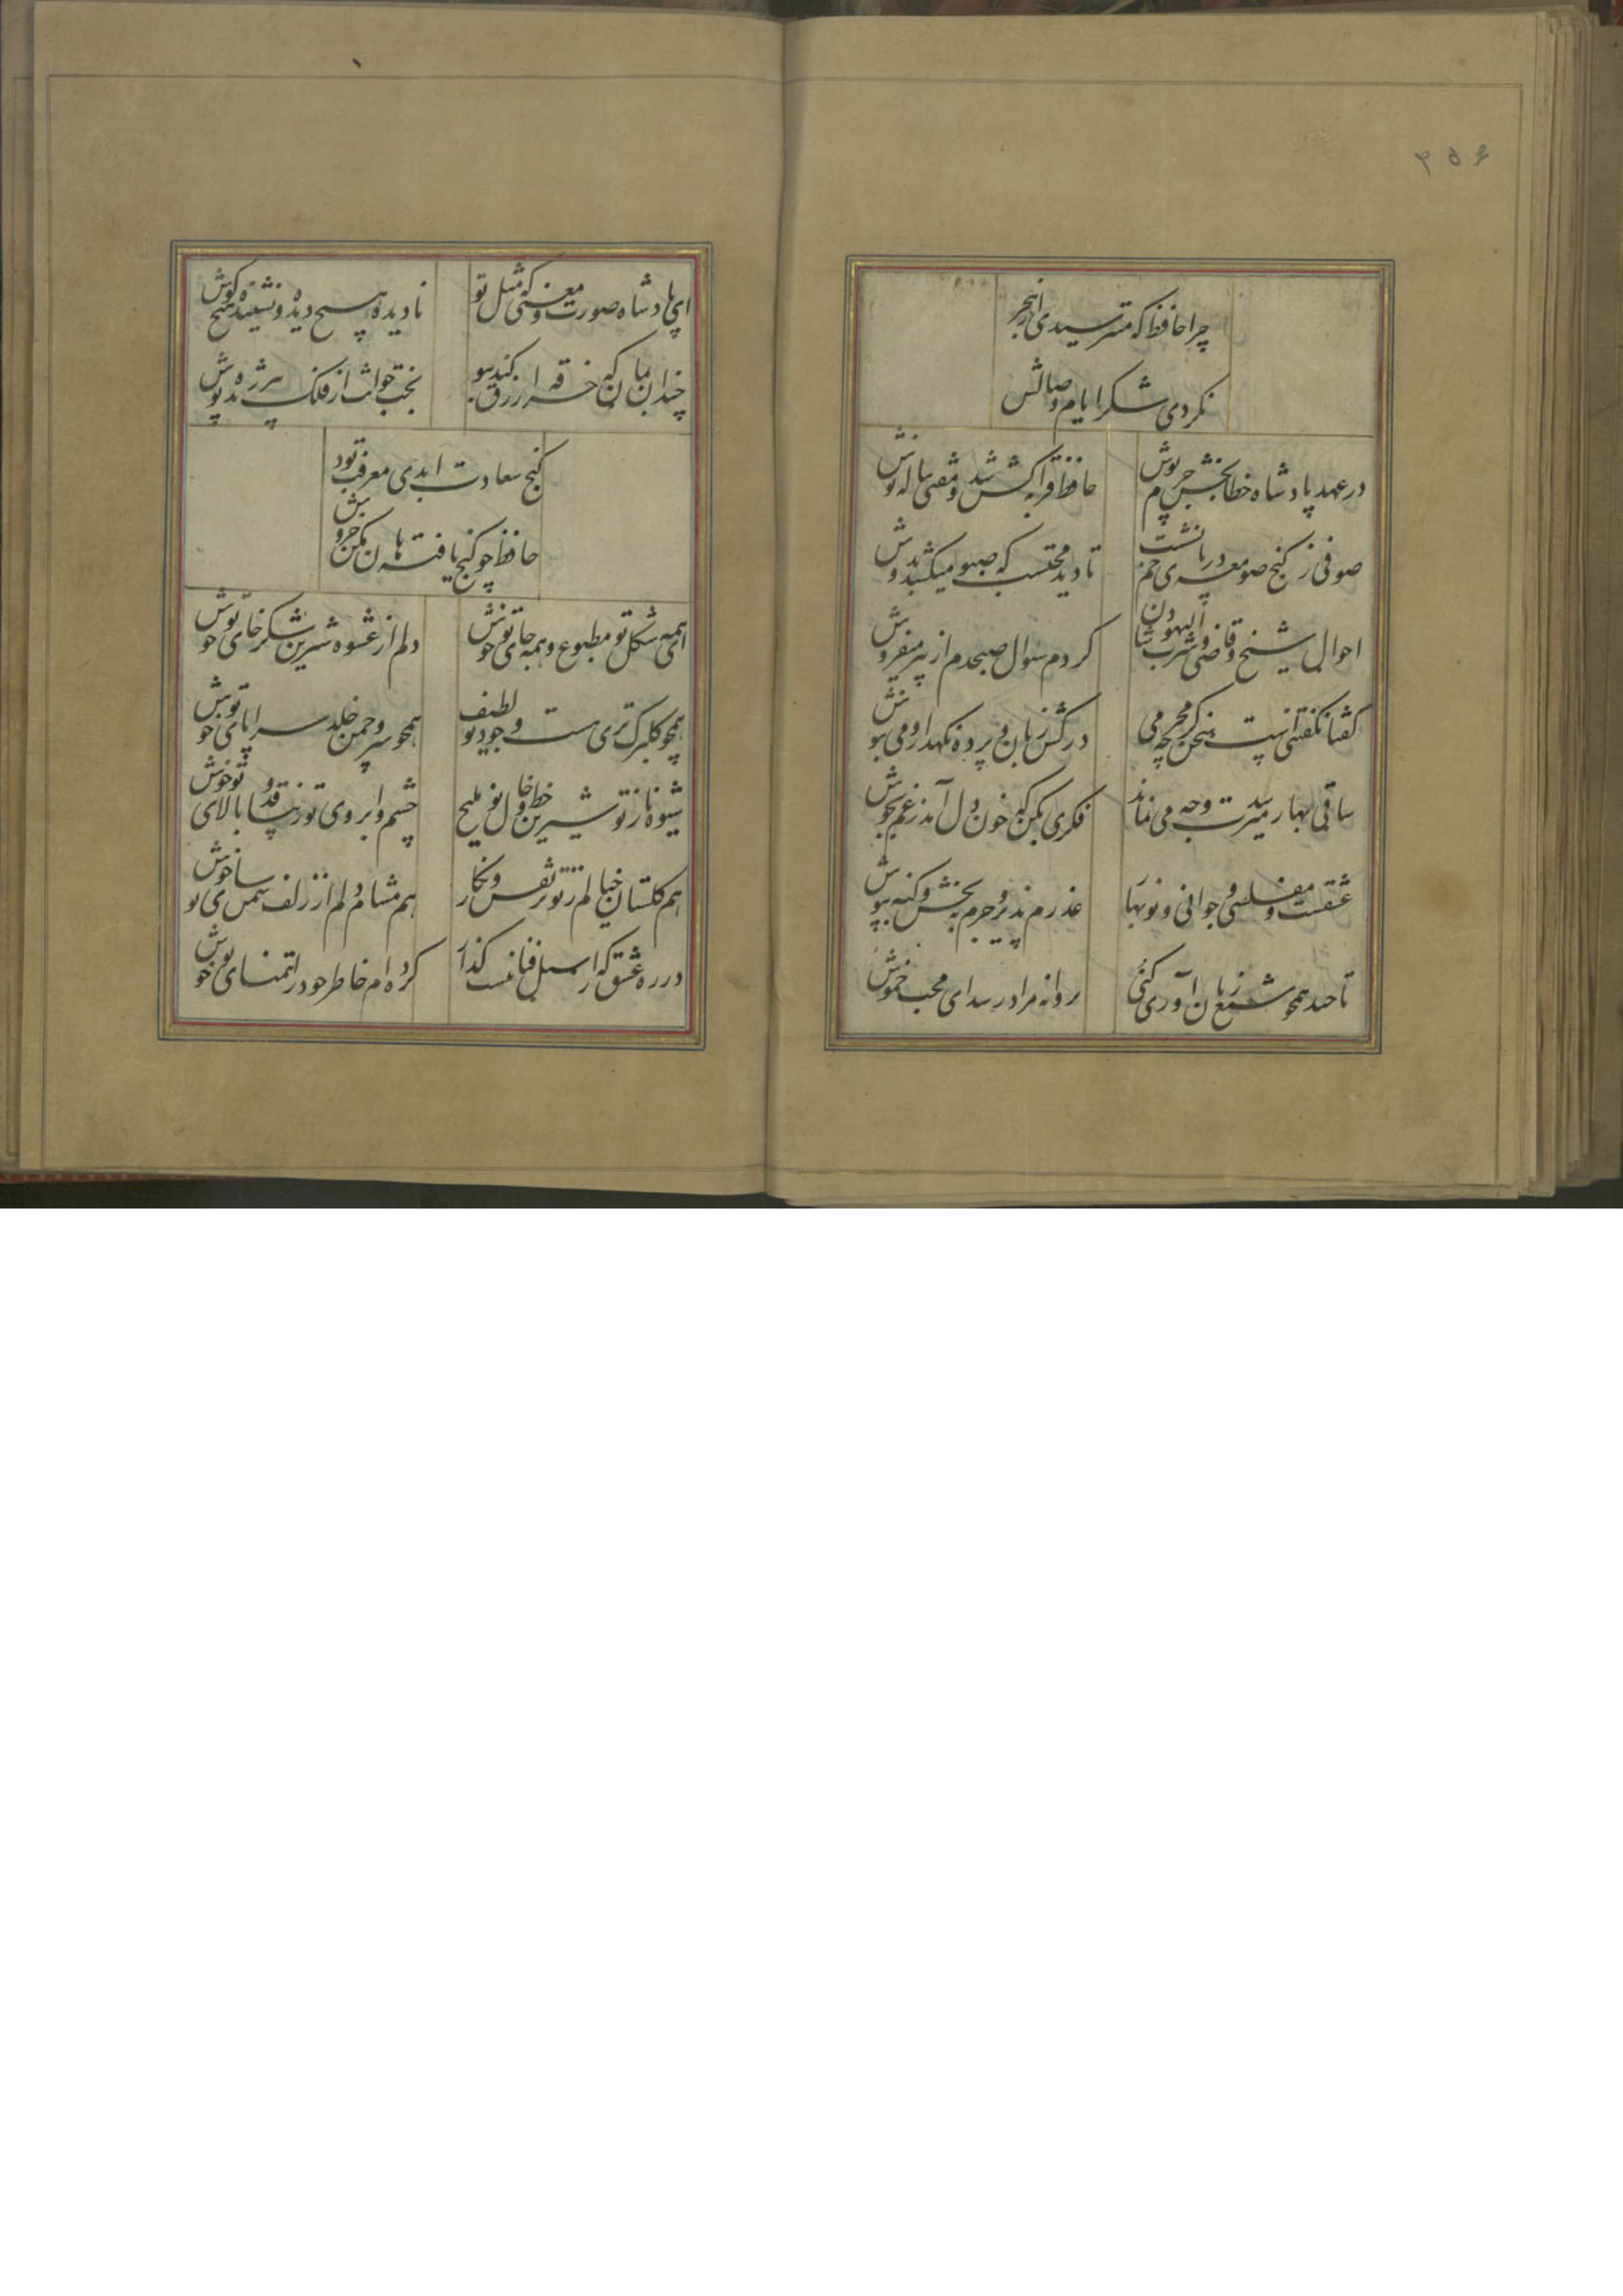 ۳۵۶
چرا حافظ که مترسیدی از هجر
نکردی شکر ایام وصالش
در عهد پادشاه خطابخش جرم پوش
حافظ قرابه کش شد و مفتی پیاله نوش
صوفی ز کنج صومعه در پای خم نشست
تا دید محتسب که سبو میکشد بدوش
احوال شیخ و قاضی و شرب الیهودشان
کردم سوال صبحدم از پیر میفروش
گفتا نگفتنی است سخن گرچه محرمی
درکش زبان و پرده نگهدار و می بنوش
ساقی بهار میرسد و وجه می نماند
فکری بکن که خون دل آمد ز غم بجوش
عشقست و مفلسی و جوانی و نوبهار
عذرم پذیر و جرم ببخش و کنه بپوش
تا چند همچو شمع زبان آوری کنی
پروانه مراد رسید ای محب خموش
ای پادشاه صورت و معنی که مثل تو
نادیده هیچ دیده و نشنیده هیچ گوش
چندان بمان که خرقه ازرق کند قبو
بخت جوانت از فلک پیر ژنده پوش
گنج سعادت ابدی معرفت بود
حافظ چو گنج یافته هان مکن خروش
ای همه شکل تو مطبوع و همه جای تو خوش
دلم از عشوه شیرین شکرخای تو خوش
همچو گلبرگ تری هست وجود تو لطیف
همچو سرو چمن خلد سراپای تو خوش
شیوه ناز تو شیرین خط و خال تو ملیح
چشم و ابروی تو زیبا قد و بالای تو خوش
هم گلستان خیالم ز تو پر نقش و نگار
هم مشام دلم از زلف سمن سای تو خوش
در ره عشق که از سیل فنا نیست گذار
کرده ام خاطر خود را تمنای تو خوش